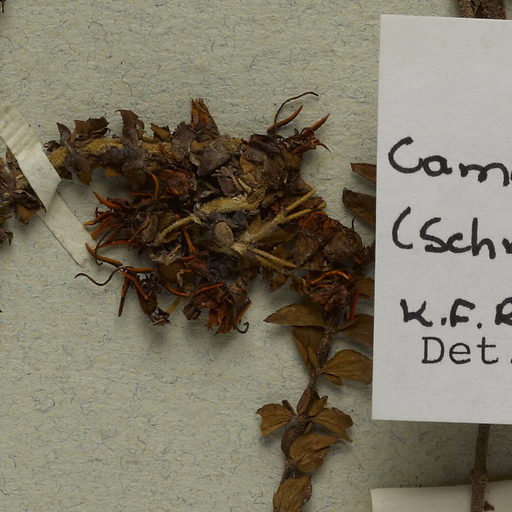 Cam
(Sch
K.F.
Det.